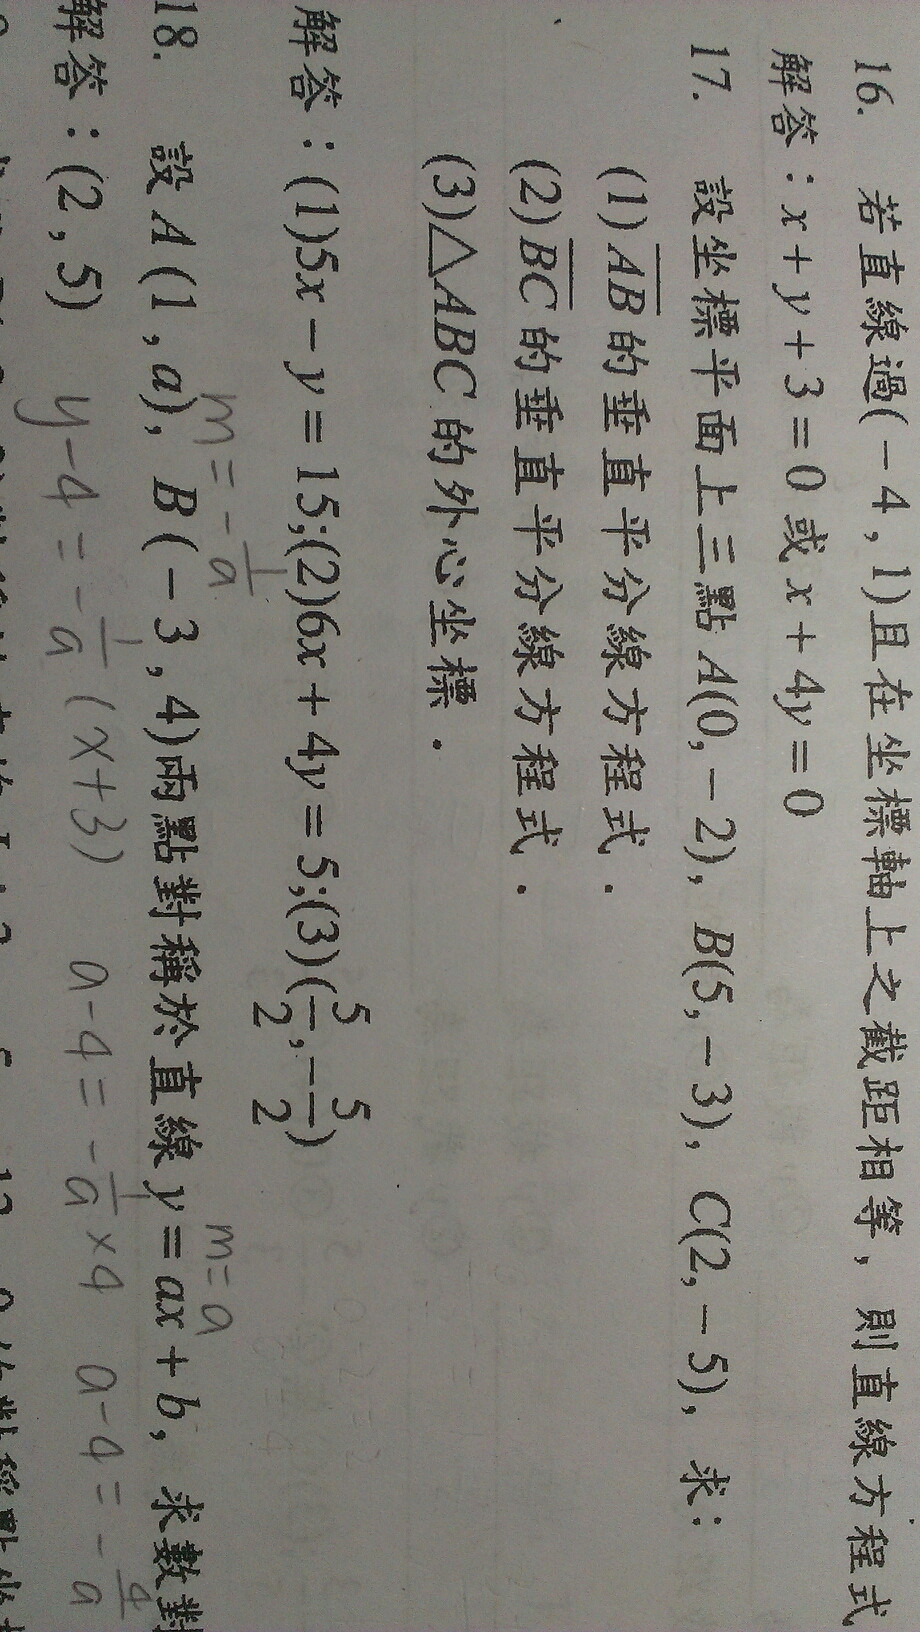 16. 若直線過(-4,1)且在坐標軸上之截距相等,則直線方程式
解答:x+y+3=0或x+4y=0
17. 設坐標平面上三點A(0,-2),B(5,-3),C(2,-5),求:
(1)\overline{AB}的垂直平分線方程式.
(2)\overline{BC}的垂直平分線方程式.
(3)△ABC的外心坐標.
解答:(1)5x-y=15;(2)6x+4y=5;(3)(5/2,-5/2)
m=-1/a m=a
18. 設A(1,a),B(-3,4)兩點對稱於直線y=ax+b,求數對
解答:(2,5)
y-4=-1/a(x+3) a-4=-1/a×4 a-4=-4/a